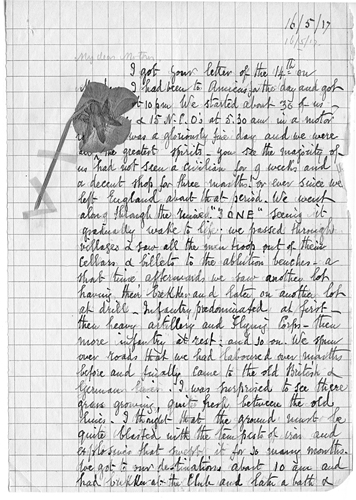 16/5/17
16/5/17.
My dear Mother
I got your letter of the 14th on
I had been to Amiens for the day and got
at 10 pm. We started about 30 of us –
& 15 N.C.O's at 5.30 am in a motor
was a gloriously fine day and we were
in the greatest spirits – you see the majority of
us had not seen a civilian for 9 weeks and
a decent shop for three months – or ever since we
left England about that period. We went
along through the ruined "ZONE" seeing it
gradually wake to life. we passed through
villages & saw all the men troop out of their
cellars & billets to the ablution benches – a
short time afterwards we saw another lot
having their brekker and later on another lot
at drill – Infantry predominated at first –
then heavy artillery and Flying Corps – then
more infantry at rest. and so on. We spun
over roads that we had laboured over months
before and finally came to the old British &
German lines. I was surprised to see there
grass growing, quite fresh between the old
lines – I thought that the ground must be
quite blasted with the tempests of iron and
explosives that swept it for so many months.
We got to our destination about 10 am and
had brekker at the Club and later a bath &